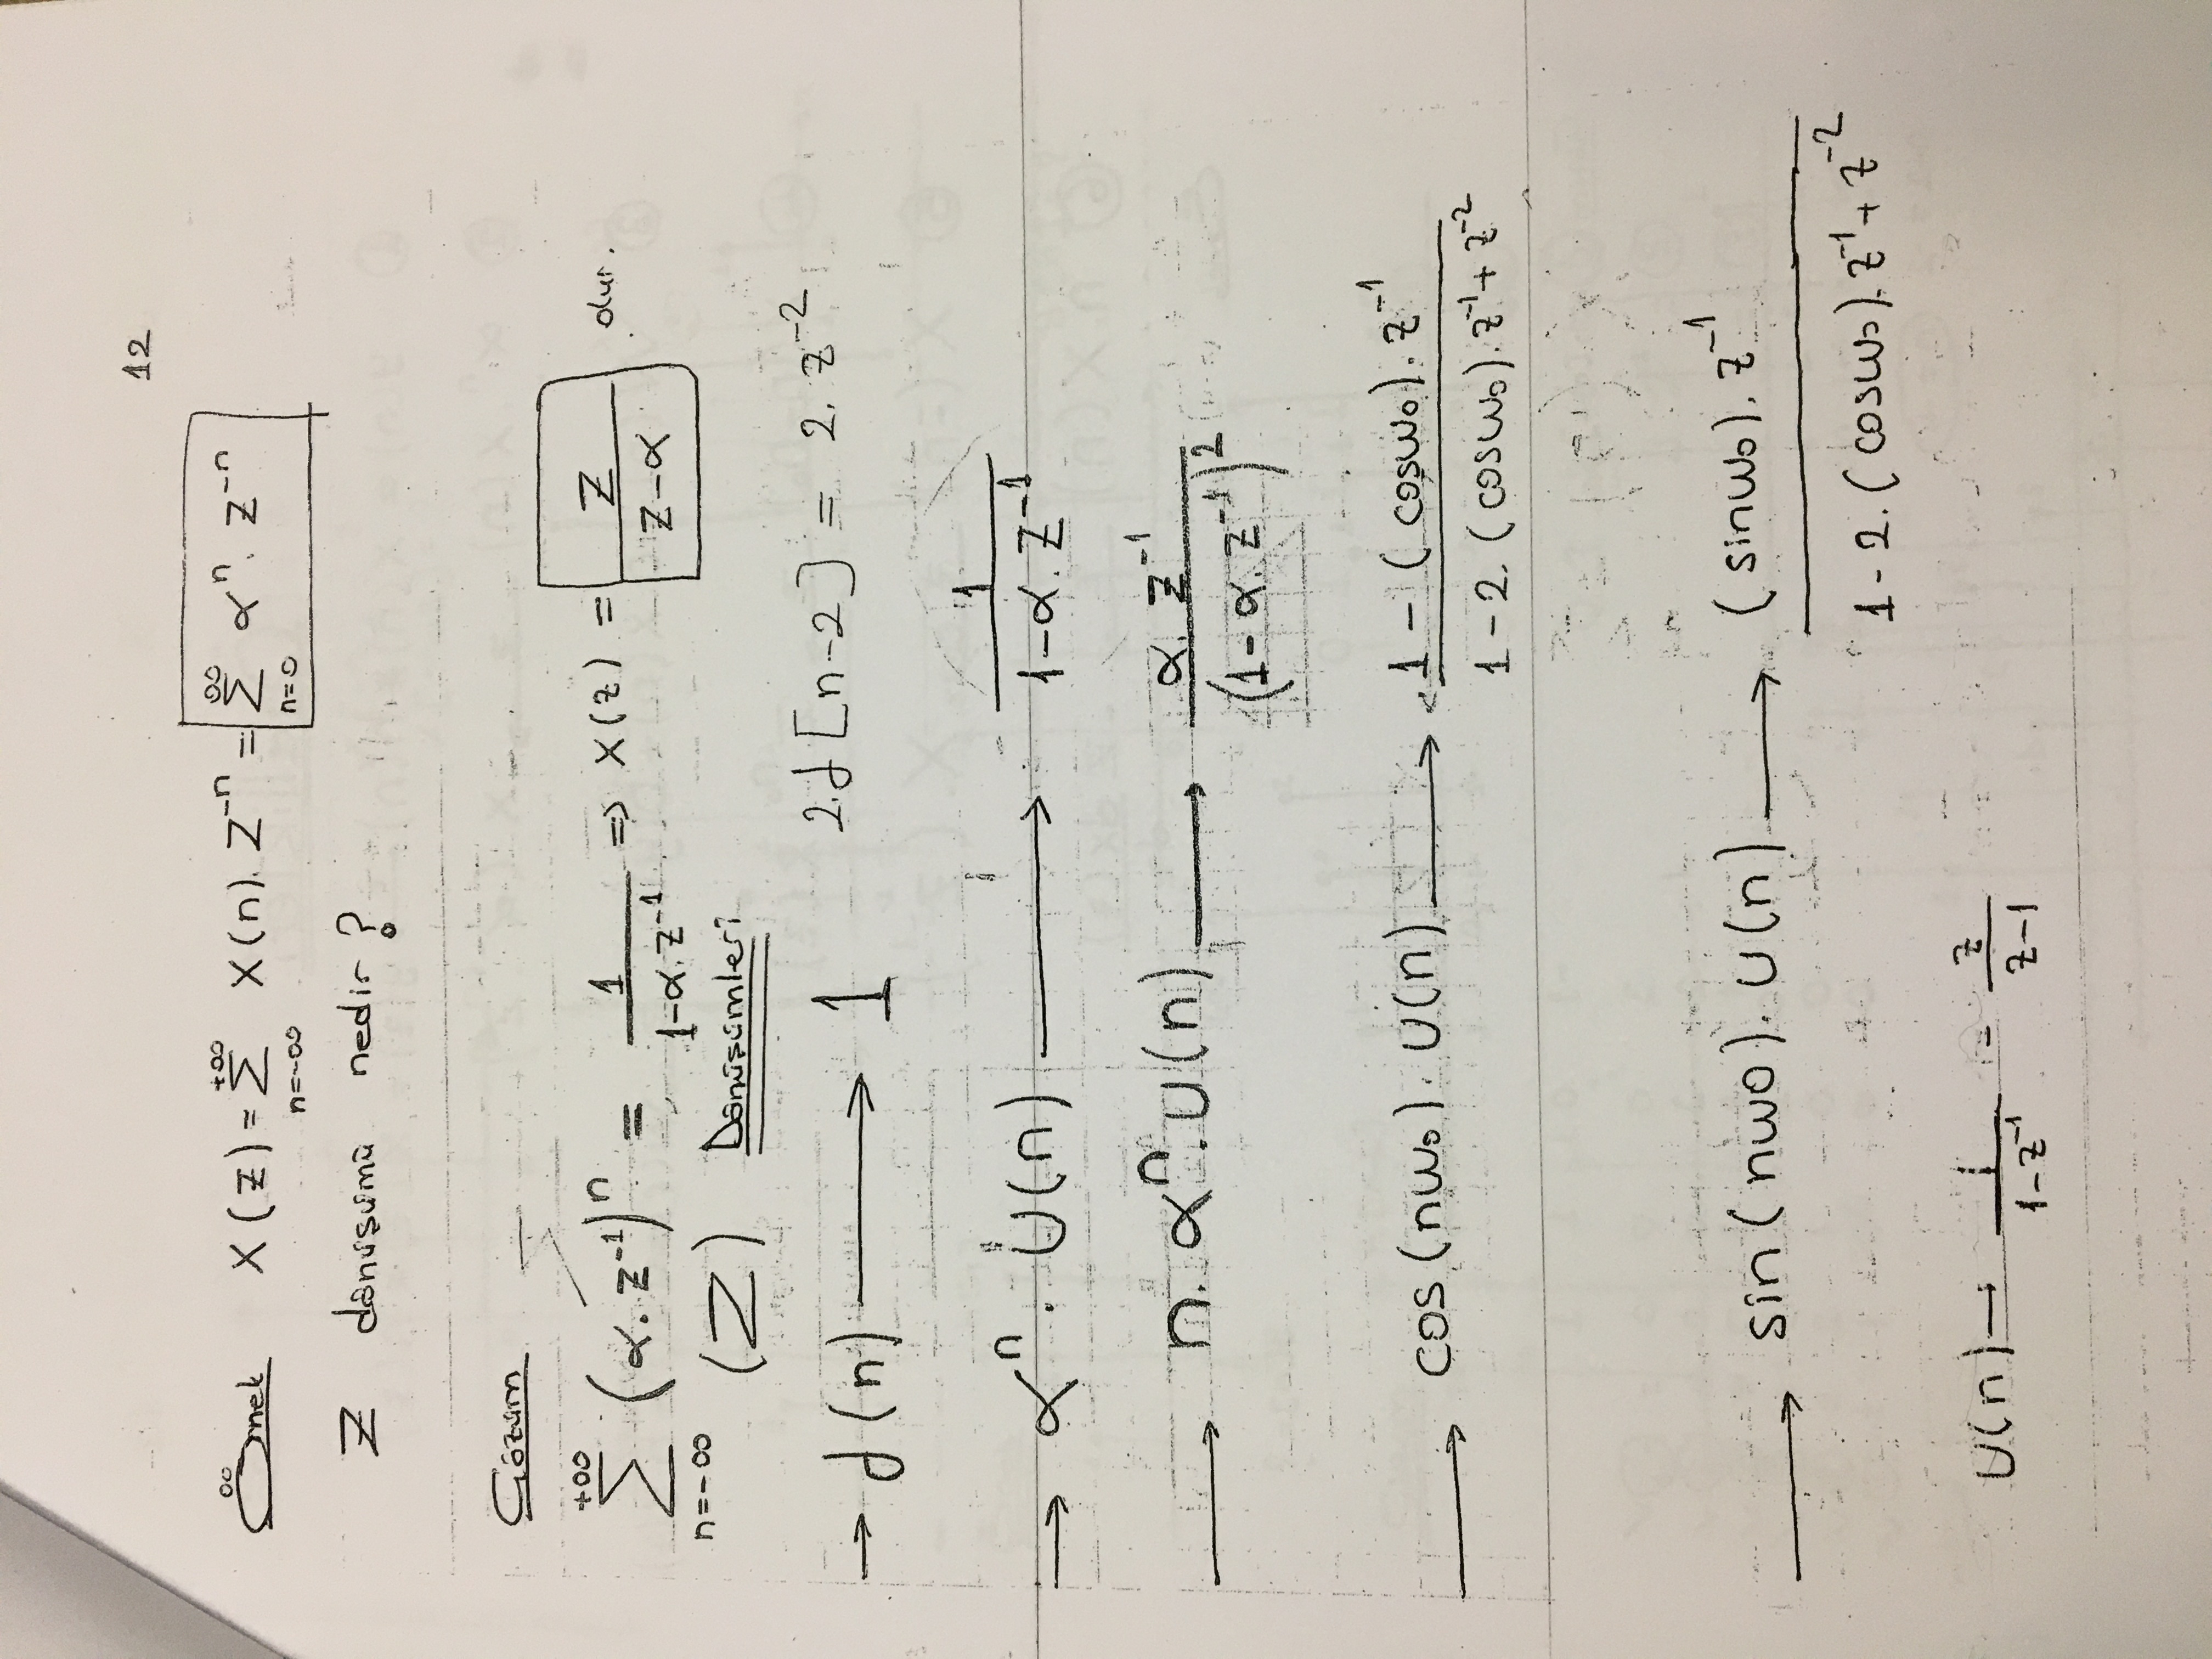 12
Örnek X(z) = +∞ Σ n=-∞ X(n). Z⁻ⁿ = ∞ Σ n=0 αⁿ. z⁻ⁿ
Z dönüşümü nedir?
Çözüm
+∞ Σ n=-∞ (α. z⁻¹)ⁿ = 1 / 1-α. z⁻¹ => X(z) = z / z-α olur.
(Z) Dönüşümleri
→ δ(n) → 1 2.δ[n-2] = 2. z⁻²
→ αⁿ. U(n) → 1 / 1-α. z⁻¹
→ n. αⁿ. U(n) → α. z⁻¹ / (1-α. z⁻¹)²
→ cos(nω₀). U(n) → 1-(cosω₀). z⁻¹ / 1-2.(cosω₀). z⁻¹+z⁻²
→ sin(nω0). U(n) → (sinω₀). z⁻¹ / 1-2.(cosω₀). z⁻¹+z⁻²
U(n) → 1 / 1-z⁻¹ = z / z-1